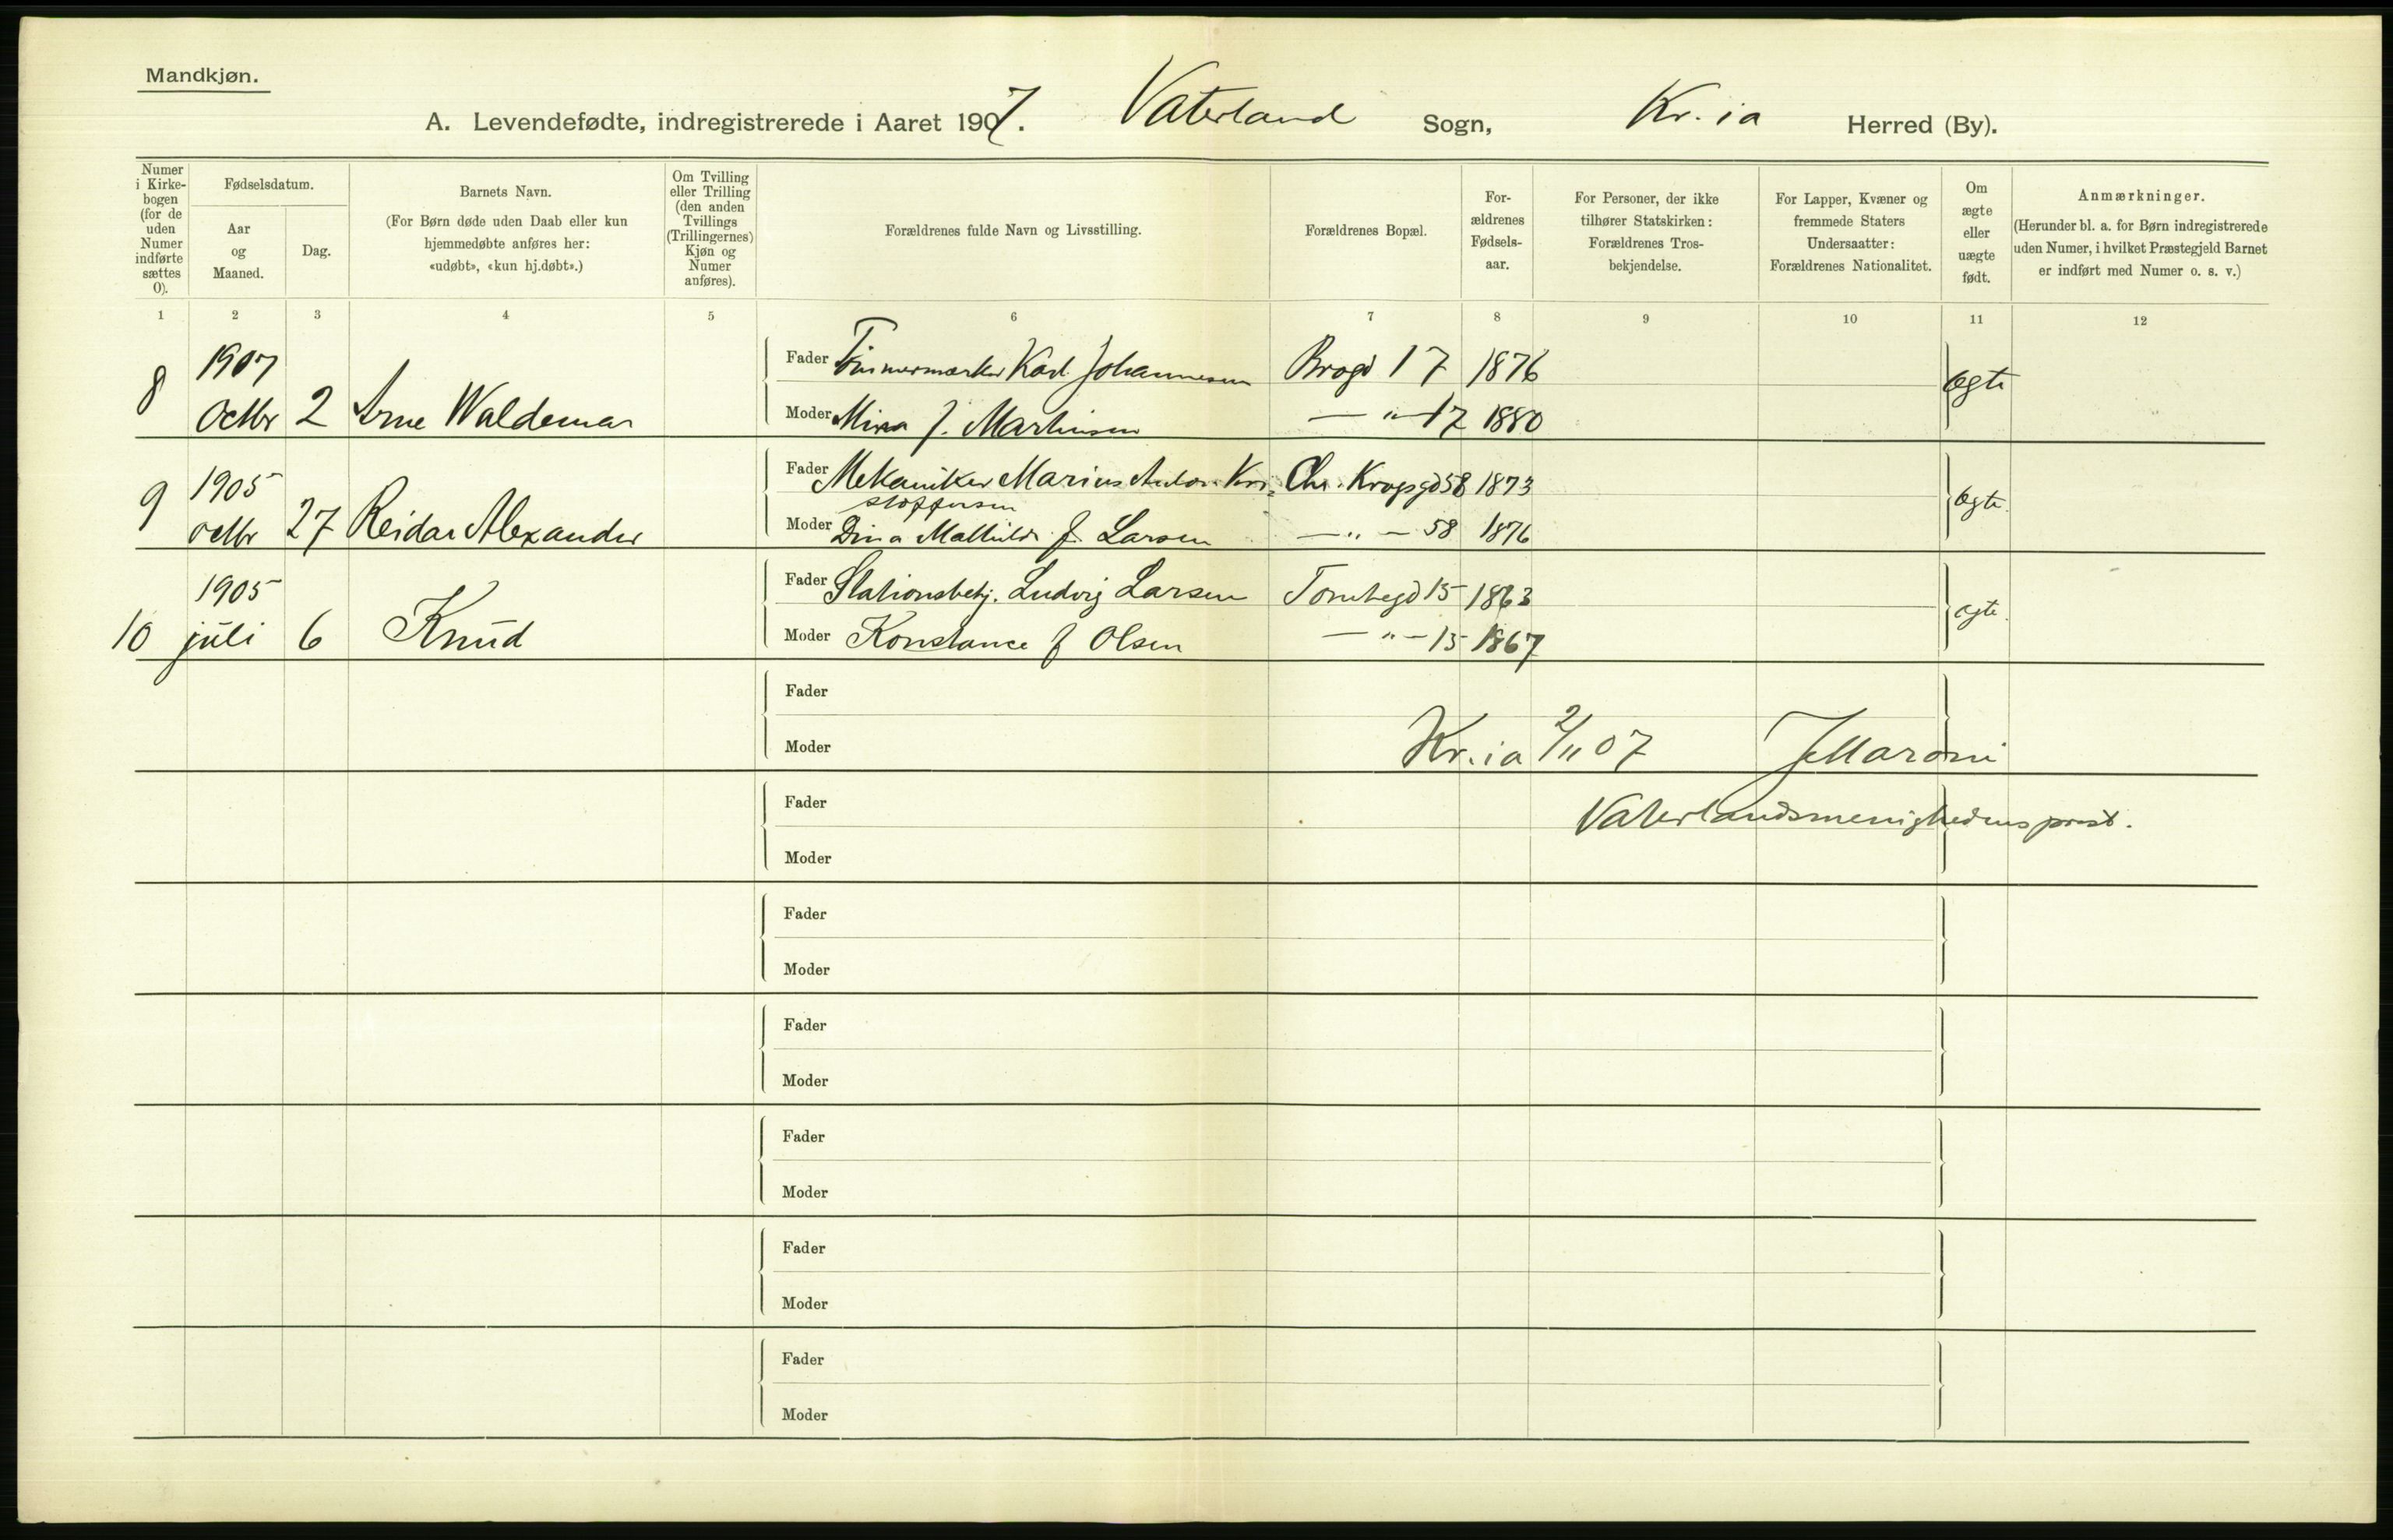 Mandkjøn.
A. Levendefødte, indregistrerede i Aaret 1907. Vaterland Sogn, Kr.ia Herred (By).
Numer i Kirkebogen (for de uden Numer indførte sættes 0).
Fødselsdatum.
Aar og Maaned.
Dag.
Barnets Navn.
(For Børn døde uden Daab eller kun hjemmedøbte anføres her: «udøbt», «kun hj.døbt».)
Om Tvilling eller Trilling (den anden Tvillings (Trillingernes) Kjøn og Numer anføres).
Forældrenes fulde Navn og Livsstilling.
Forældrenes Bopæl.
Forældrenes Fødselsaar.
For Personer, der ikke tilhører Statskirken: Forældrenes Trosbekjendelse.
For Lapper, Kvæner og fremmede Staters Undersaatter: Forældrenes Nationalitet.
Om ægte eller uægte født.
Anmærkninger.
(Herunder bl. a. for Børn indregistrerede uden Numer, i hvilket Præstegjeld Barnet er indført med Numer o. s. v.)
1 2 3 4 5 6 7 8 9 10 11 12
8 1907 Octbr 2 Arne Waldemar
Fader Karl Johannesen Brogd 17 1876 ægte
Moder f. Martinsen — " — 17 1880
9 1905 octbr 27 Reidar Alexander
Fader Mekaniker Marius Anton Kri= Chr. Krogsgd 58 1873 ægte.
stoffersen
Moder Dina Mathilde f. Larsen — " — 58 1876
10 1905 juli 6 Knud
Fader Stationsbetj. Ludvig Larsen Tomtegd 15 1863 ægte.
Moder Konstance f Olsen — " — 15 1867
Fader
Moder
Kr.ia 2/11 07 JMaroni
Fader
Vaterlandsmenighedens prest.
Moder
Fader
Moder
Fader
Moder
Fader
Moder
Fader
Moder
Fader
Moder